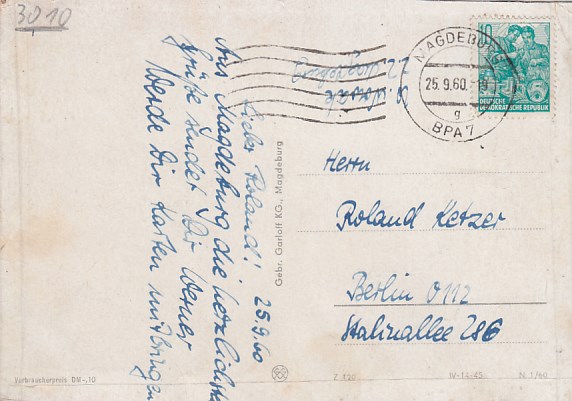 3010
Lieber Roland! 25.9.60
Aus Magdeburg die herzlichsten
Grüße sendet Dir Werner
Werde Dir Karten mitbringen
Magdeburg
MAGDEBURG
25.9.60
g
BPA 7
10
DEUTSCHE
DEMOKRATISCHE REPUBLIK
Gebr. Garloff KG., Magdeburg
Herrn
Roland Ketzer
Berlin O 112
Stalinallee 286
Verbraucherpreis DM -,10
Z 120
IV-14-45
N 1/60